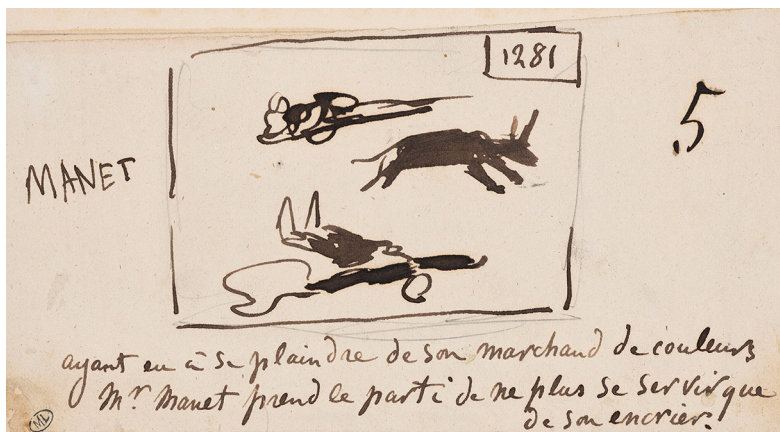 1281
5
MANET
ayant eu à se plaindre de son marchand de couleurs
Mr. Manet prend le parti de ne plus se servir que
de son encrier.
ML